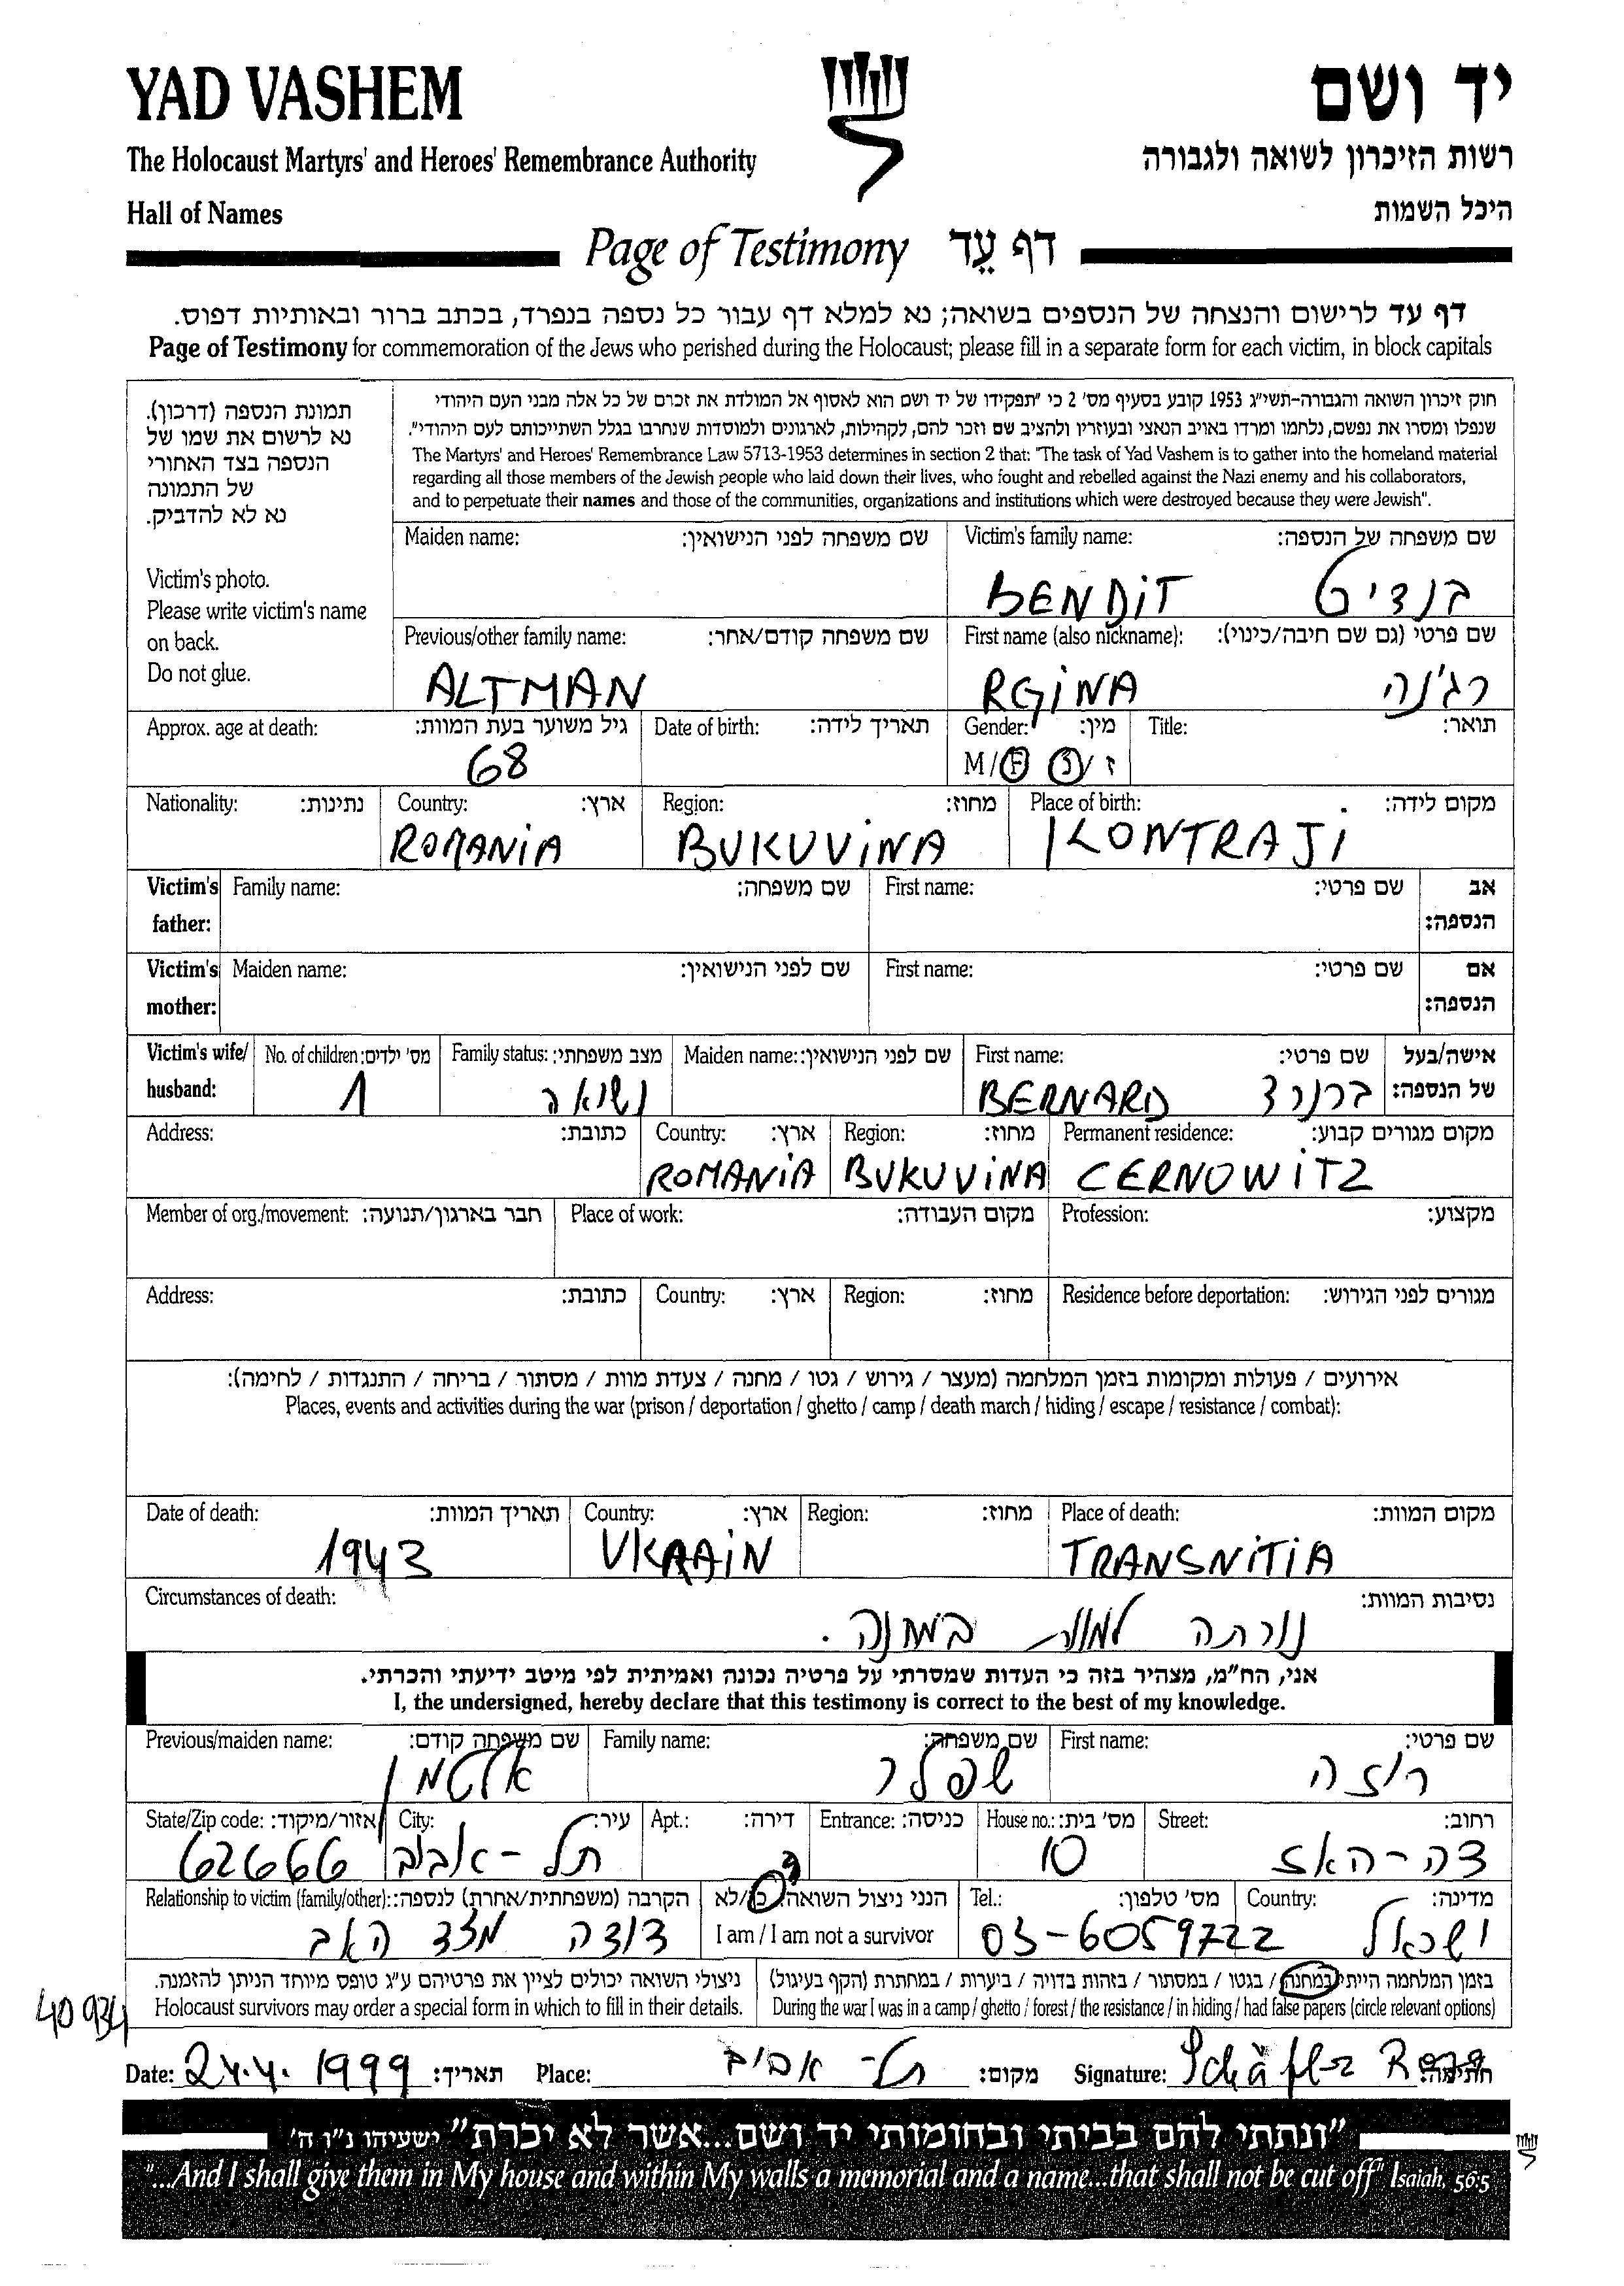 YAD VASHEM
יד ושם
The Holocaust Martyrs' and Heroes' Remembrance Authority
רשות הזיכרון לשואה ולגבורה
Hall of Names
היכל השמות
Page of Testimony דף עֵד
דף עד לרישום והנצחה של הנספים בשואה; נא למלא דף עבור כל נספה בנפרד, בכתב ברור ובאותיות דפוס.
Page of Testimony for commemoration of the Jews who perished during the Holocaust; please fill in a separate form for each victim, in block capitals
תמונת הנספה (דרכון).
נא לרשום את שמו של
הנספה בצד האחורי
של התמונה
נא לא להדביק.
Victim's photo.
Please write victim's name
on back.
Do not glue.
חוק זיכרון השואה והגבורה-תשי"ג 1953 קובע בסעיף מס' 2 כי "תפקידו של יד ושם הוא לאסוף אל המולדת את זכרם של כל אלה מבני העם היהודי
שנפלו ומסרו את נפשם, נלחמו ומרדו באויב הנאצי ובעוזריו ולהציב שם וזכר להם, לקהילות, לארגונים ולמוסדות שנחרבו בגלל השתייכותם לעם היהודי".
The Martyrs' and Heroes' Remembrance Law 5713-1953 determines in section 2 that: "The task of Yad Vashem is to gather into the homeland material
regarding all those members of the Jewish people who laid down their lives, who fought and rebelled against the Nazi enemy and his collaborators,
and to perpetuate their names and those of the communities, organizations and institutions which were destroyed because they were Jewish".
Maiden name: שם משפחה לפני הנישואין: Victim's family name: שם משפחה של הנספה:
BENDiT בנדיט
Previous/other family name: שם משפחה קודם/אחר: First name (also nickname): שם פרטי (גם שם חיבה/כינוי):
ALTMAN RGiNA רג'נה
Approx. age at death: גיל משוער בעת המוות: Date of birth: תאריך לידה: Gender: מין: Title: תואר:
68 M/F ז/נ
Nationality: נתינות: Country: ארץ: Region: מחוז: Place of birth: מקום לידה:
ROMANiA BUKUViNA KONTRAJi
Victim's father: Family name: שם משפחה: First name: שם פרטי: אב הנספה:
Victim's mother: Maiden name: שם לפני הנישואין: First name: שם פרטי: אם הנספה:
Victim's wife/ husband: No. of children: מס' ילדים: Family status: מצב משפחתי: Maiden name: שם לפני הנישואין: First name: שם פרטי: אישה/בעל של הנספה:
1 נשואה BERNARD ברנרד
Address: כתובת: Country: ארץ: Region: מחוז: Permanent residence: מקום מגורים קבוע:
ROMANiA BUKUViNA CERNOWiTZ
Member of org./movement: חבר בארגון/תנועה: Place of work: מקום העבודה: Profession: מקצוע:
Address: כתובת: Country: ארץ: Region: מחוז: Residence before deportation: מגורים לפני הגירוש:
אירועים / פעולות ומקומות בזמן המלחמה (מעצר / גירוש / גטו / מחנה / צעדת מוות / מסתור / בריחה / התנגדות / לחימה):
Places, events and activities during the war (prison / deportation / ghetto / camp / death march / hiding / escape / resistance / combat):
Date of death: תאריך המוות: Country: ארץ: Region: מחוז: Place of death: מקום המוות:
1943 UKRAiN TRANSNiTiA
Circumstances of death: נסיבות המוות:
נורתה למוות במחנה.
אני, הח"מ, מצהיר בזה כי העדות שמסרתי על פרטיה נכונה ואמיתית לפי מיטב ידיעתי והכרתי.
I, the undersigned, hereby declare that this testimony is correct to the best of my knowledge.
Previous/maiden name: שם משפחה קודם: Family name: שם משפחה: First name: שם פרטי:
אלטמן שפלר רוזה
State/Zip code: אזור/מיקוד: City: עיר: Apt.: דירה: Entrance: כניסה: House no.: מס' בית: Street: רחוב:
62666 תל-אביב 10 דה-האז
Relationship to victim (family/other): הקרבה (משפחתית/אחרת) לנספה: הנני ניצול השואה: כן/לא Tel.: מס' טלפון: Country: מדינה:
דודה מצד האב I am / I am not a survivor 03-6059722 ישראל
ניצולי השואה יכולים לציין את פרטיהם ע"ג טופס מיוחד הניתן להזמנה.
Holocaust survivors may order a special form in which to fill in their details.
בזמן המלחמה הייתי במחנה / בגטו / במסתור / בזהות בדויה / ביערות / במחתרת (הקף בעיגול)
During the war I was in a camp / ghetto / forest / the resistance / in hiding / had false papers (circle relevant options)
40934
Date: 24.4. 1999 תאריך: Place: תל-אביב מקום: Signature: Schäfler Roza חתימה:
"ונתתי להם בביתי ובחומותי יד ושם...אשר לא יכרת" ישעיהו נ"ו ה'
"...And I shall give them in My house and within My walls a memorial and a name...that shall not be cut off" Isaiah, 56:5